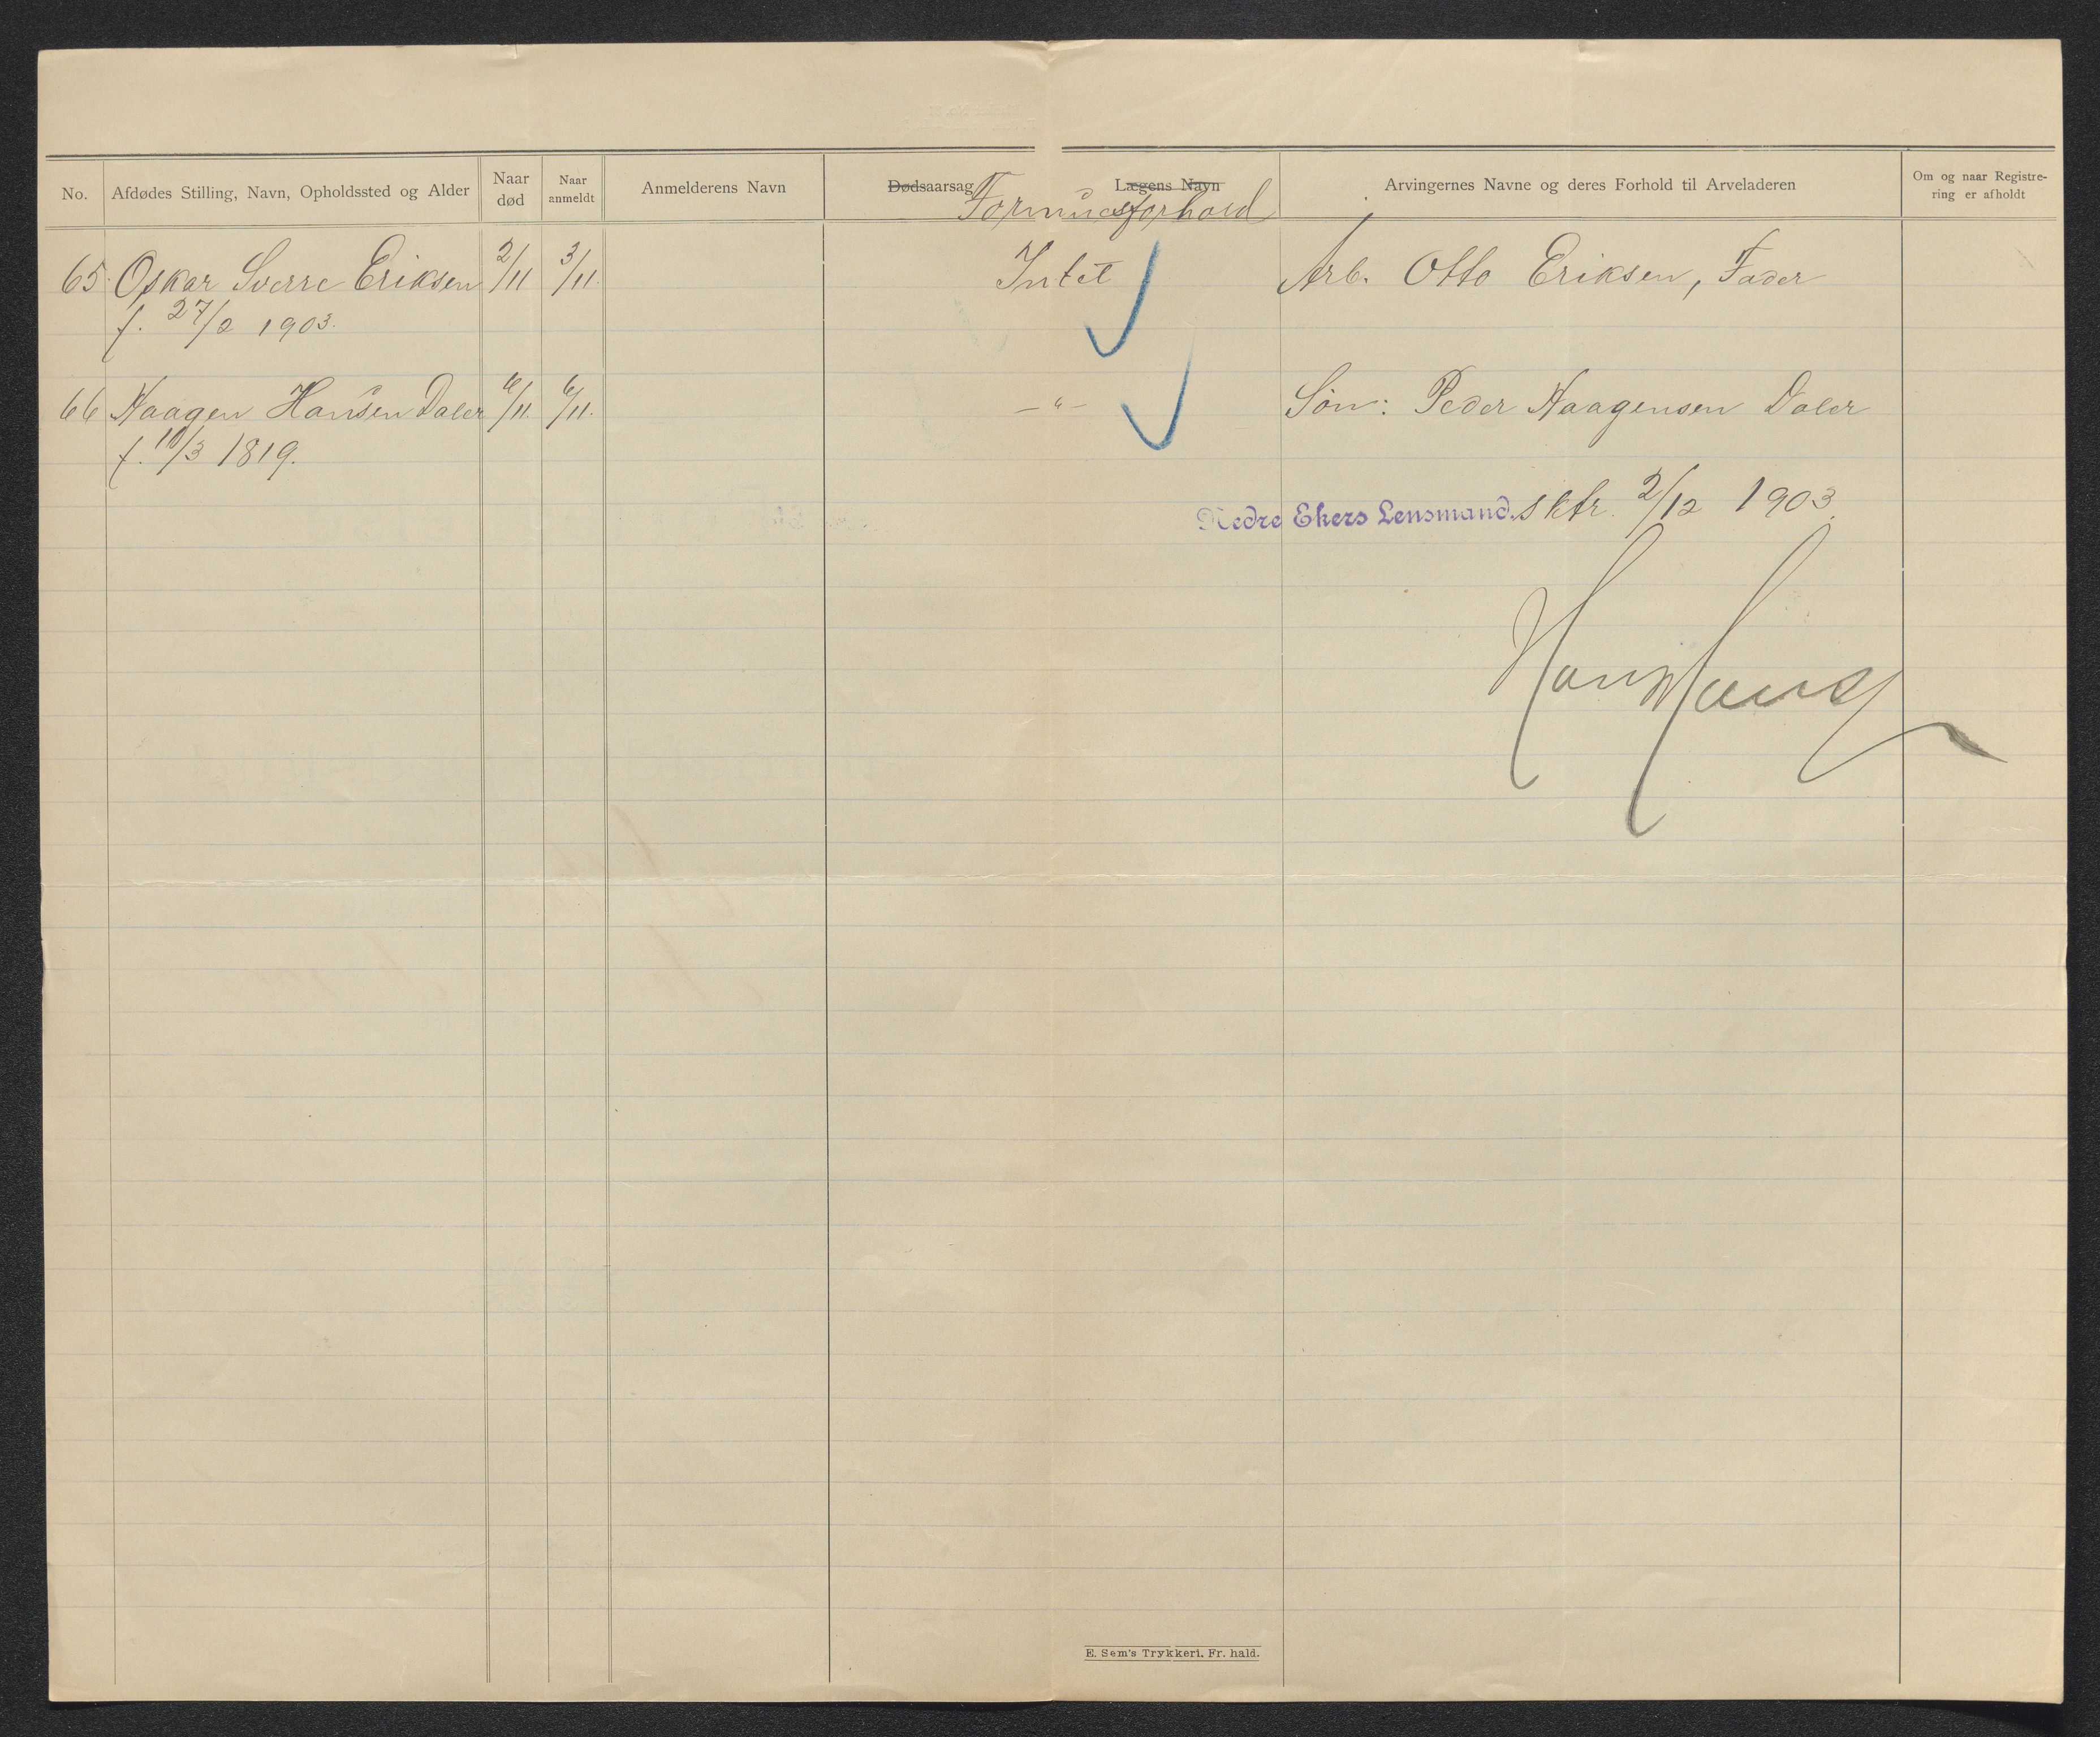 No. Afdødes Stilling, Navn, Opholdssted og Alder Naar død Naar anmeldt Anmelderens Navn Dødsaarsag Lægens Navn Arvingernes Navne og deres Forhold til Arveladeren Om og naar Registre-
ring er afholdt
Formuesforhold
65. Oskar Sverre Eriksen 2/11 3/11. Intet Arb. Otto Eriksen, Fader
f. 27/2 1903.
66 Haagen Hansen Daler 6/11. 6/11. - " - Søn: Peder Haagensen Daler
f. 10/3 1819.
Nedre Ekers Lensmand.sktr. 2/12 1903.
E. Sem's Trykkeri. Fr. hald.